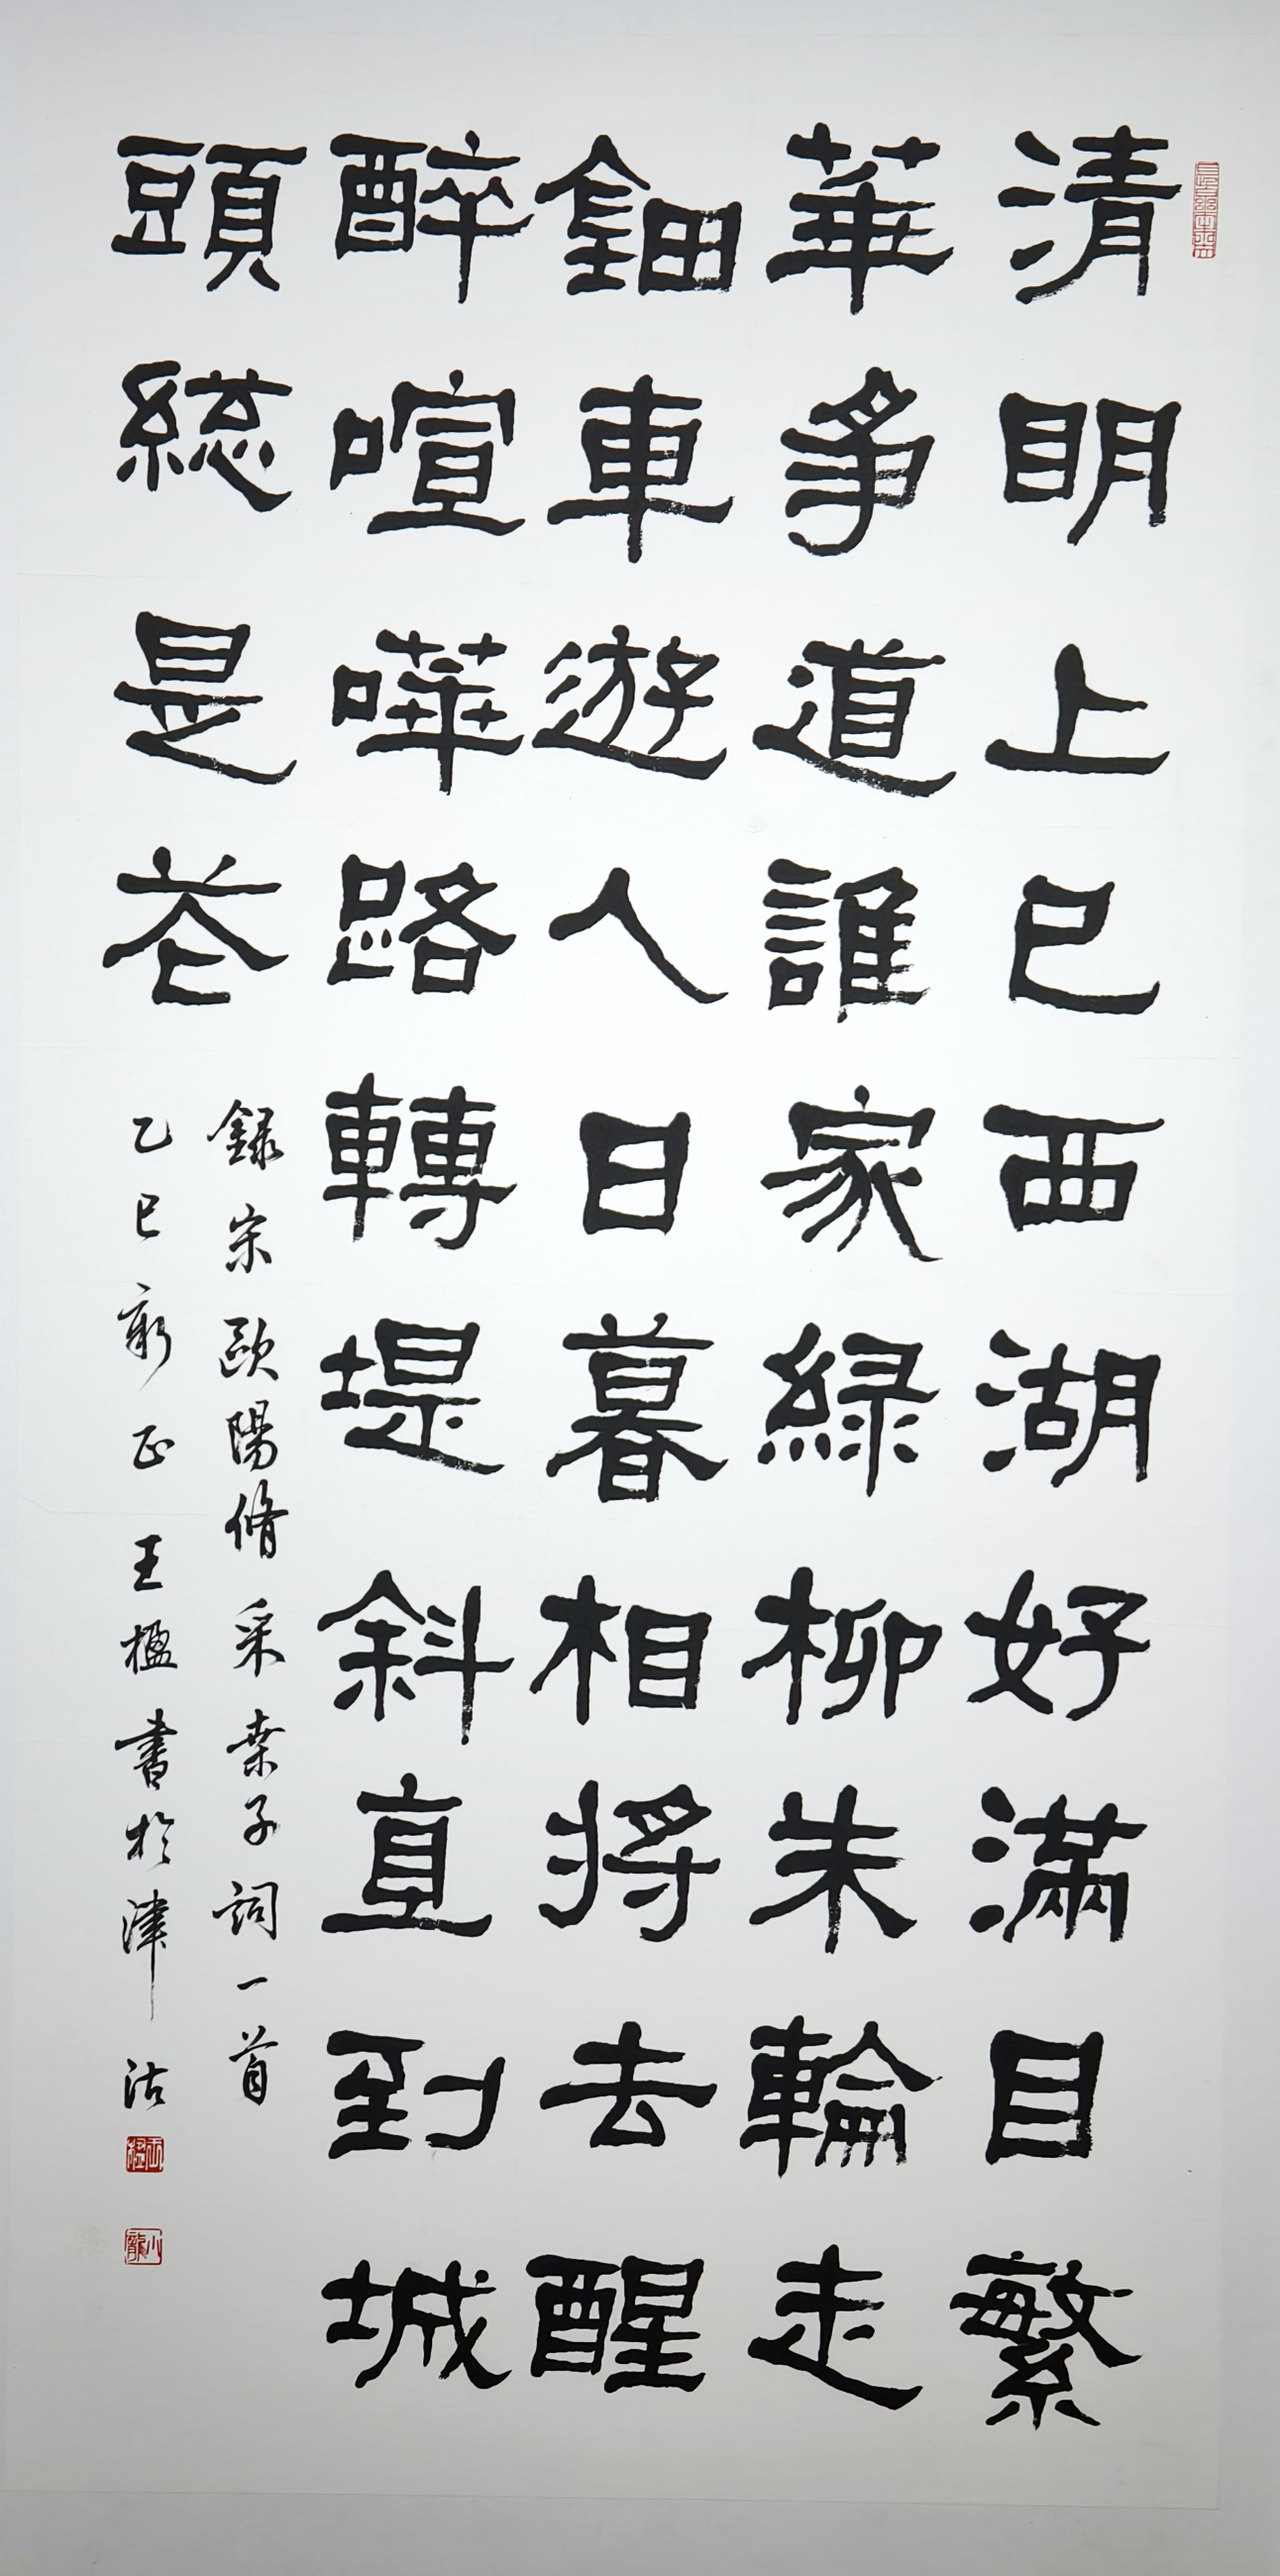 清明上巳西湖好滿目繁
華爭道誰家綠柳朱輪走
鈿車遊人日暮相將去醒
醉喧嘩路轉堤斜直到城
頭総是花
録宋歐陽脩采桑子詞一首
乙巳新正王楹書於津沽
王楹
小龍